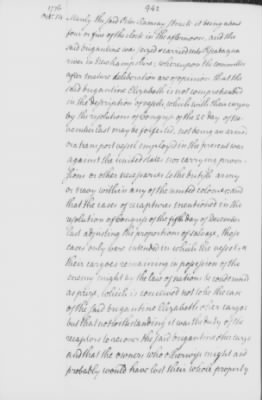 1776 942
Octr. 14 Manly the said Peter Ramsay struck it being about
four or five of the clock in the afternoon, and the
said brigantine was seized & carried into Piscataqua
river in New hampshire; whereupon the committee
after mature deliberation are of opinion that the
said brigantine Elizabeth is not comprehended
in the description of vessels, which with their cargoes
by the resolutions of Congress of the 25 day of No-
vember last may be forfeited, not being an armed
or a transport vessel employed in the present war
against the united states nor carrying provi-
sions or other necessaries to the british army
or navy within any of the united colonies and
that the cases of recaptures mentioned in the
resolution of Congress of the fifth day of December
last adjusting the proportions of salvage, those
cases only were intended in which the vessels &
their cargoes remaining in possession of the
enemy might by the law of nations be condemned
as prize, which is conceived not to be the case
of the said brigantine Elizabeth & her cargo
but that notwithstanding it was the duty of the
recaptors to recover the said brigantine & her cargo
and that the owners who otherwise might and
probably would have lost their whole property